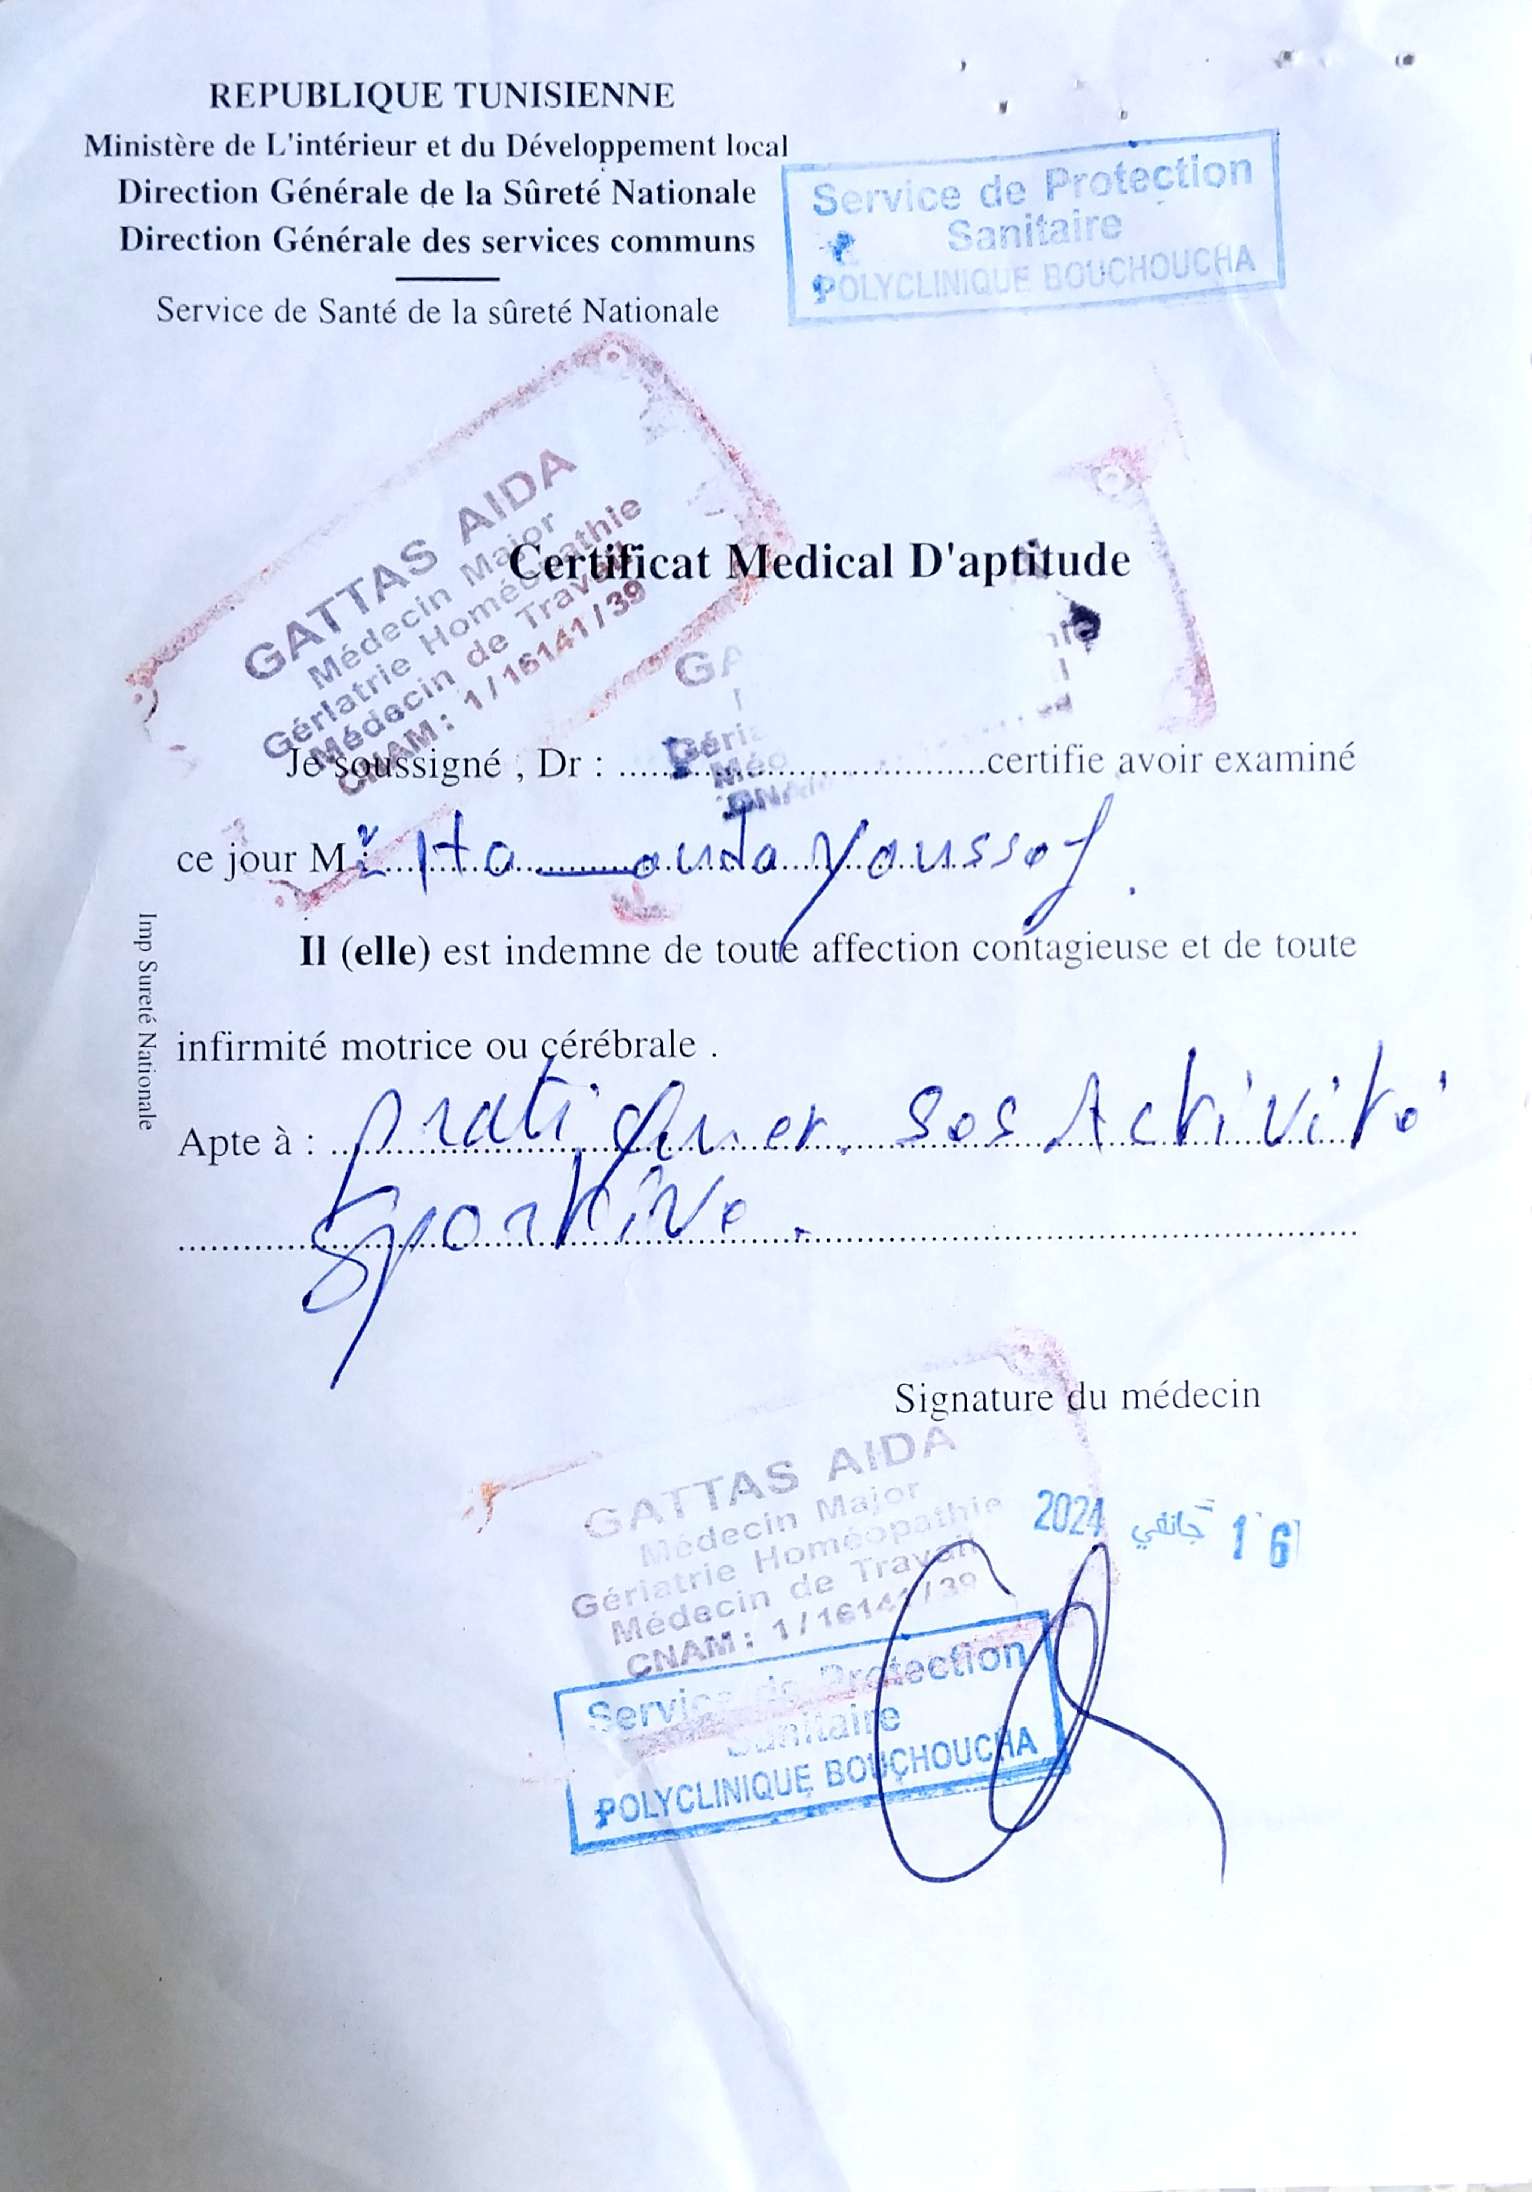 REPUBLIQUE TUNISIENNE
Ministère de L'intérieur et du Développement local
Direction Générale de la Sûreté Nationale
Direction Générale des services communs
Service de Santé de la sûreté Nationale
Service de Protection
Sanitaire
POLYCLINIQUE BOUCHOUCHA
GATTAS AIDA
Médecin Major
Gériatrie Homéopathie
Médecin de Travail
CNAM : 1/16141/39
Certificat Medical D'aptitude
Je soussigné , Dr : certifie avoir examiné
ce jour M : Youssef
Il (elle) est indemne de toute affection contagieuse et de toute
infirmité motrice ou cérébrale .
Apte à : pratiquer ses Activité
Sportive .
Imp Sureté Nationale
Signature du médecin
GATTAS AIDA
Médecin Major
Gériatrie Homéopathie
Médecin de Travail
CNAM : 1/16141/39
2024 جانفي 16
Service de Protection
Sanitaire
POLYCLINIQUE BOUCHOUCHA